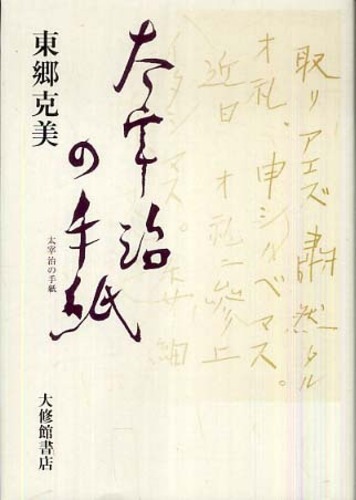 取リアエズ 粛然タル
オ礼、申シノベマス。
近日 オ礼ニ参上
イタシマス。委細
太宰治
の手紙
太宰治の手紙
東郷克美
大修館書店